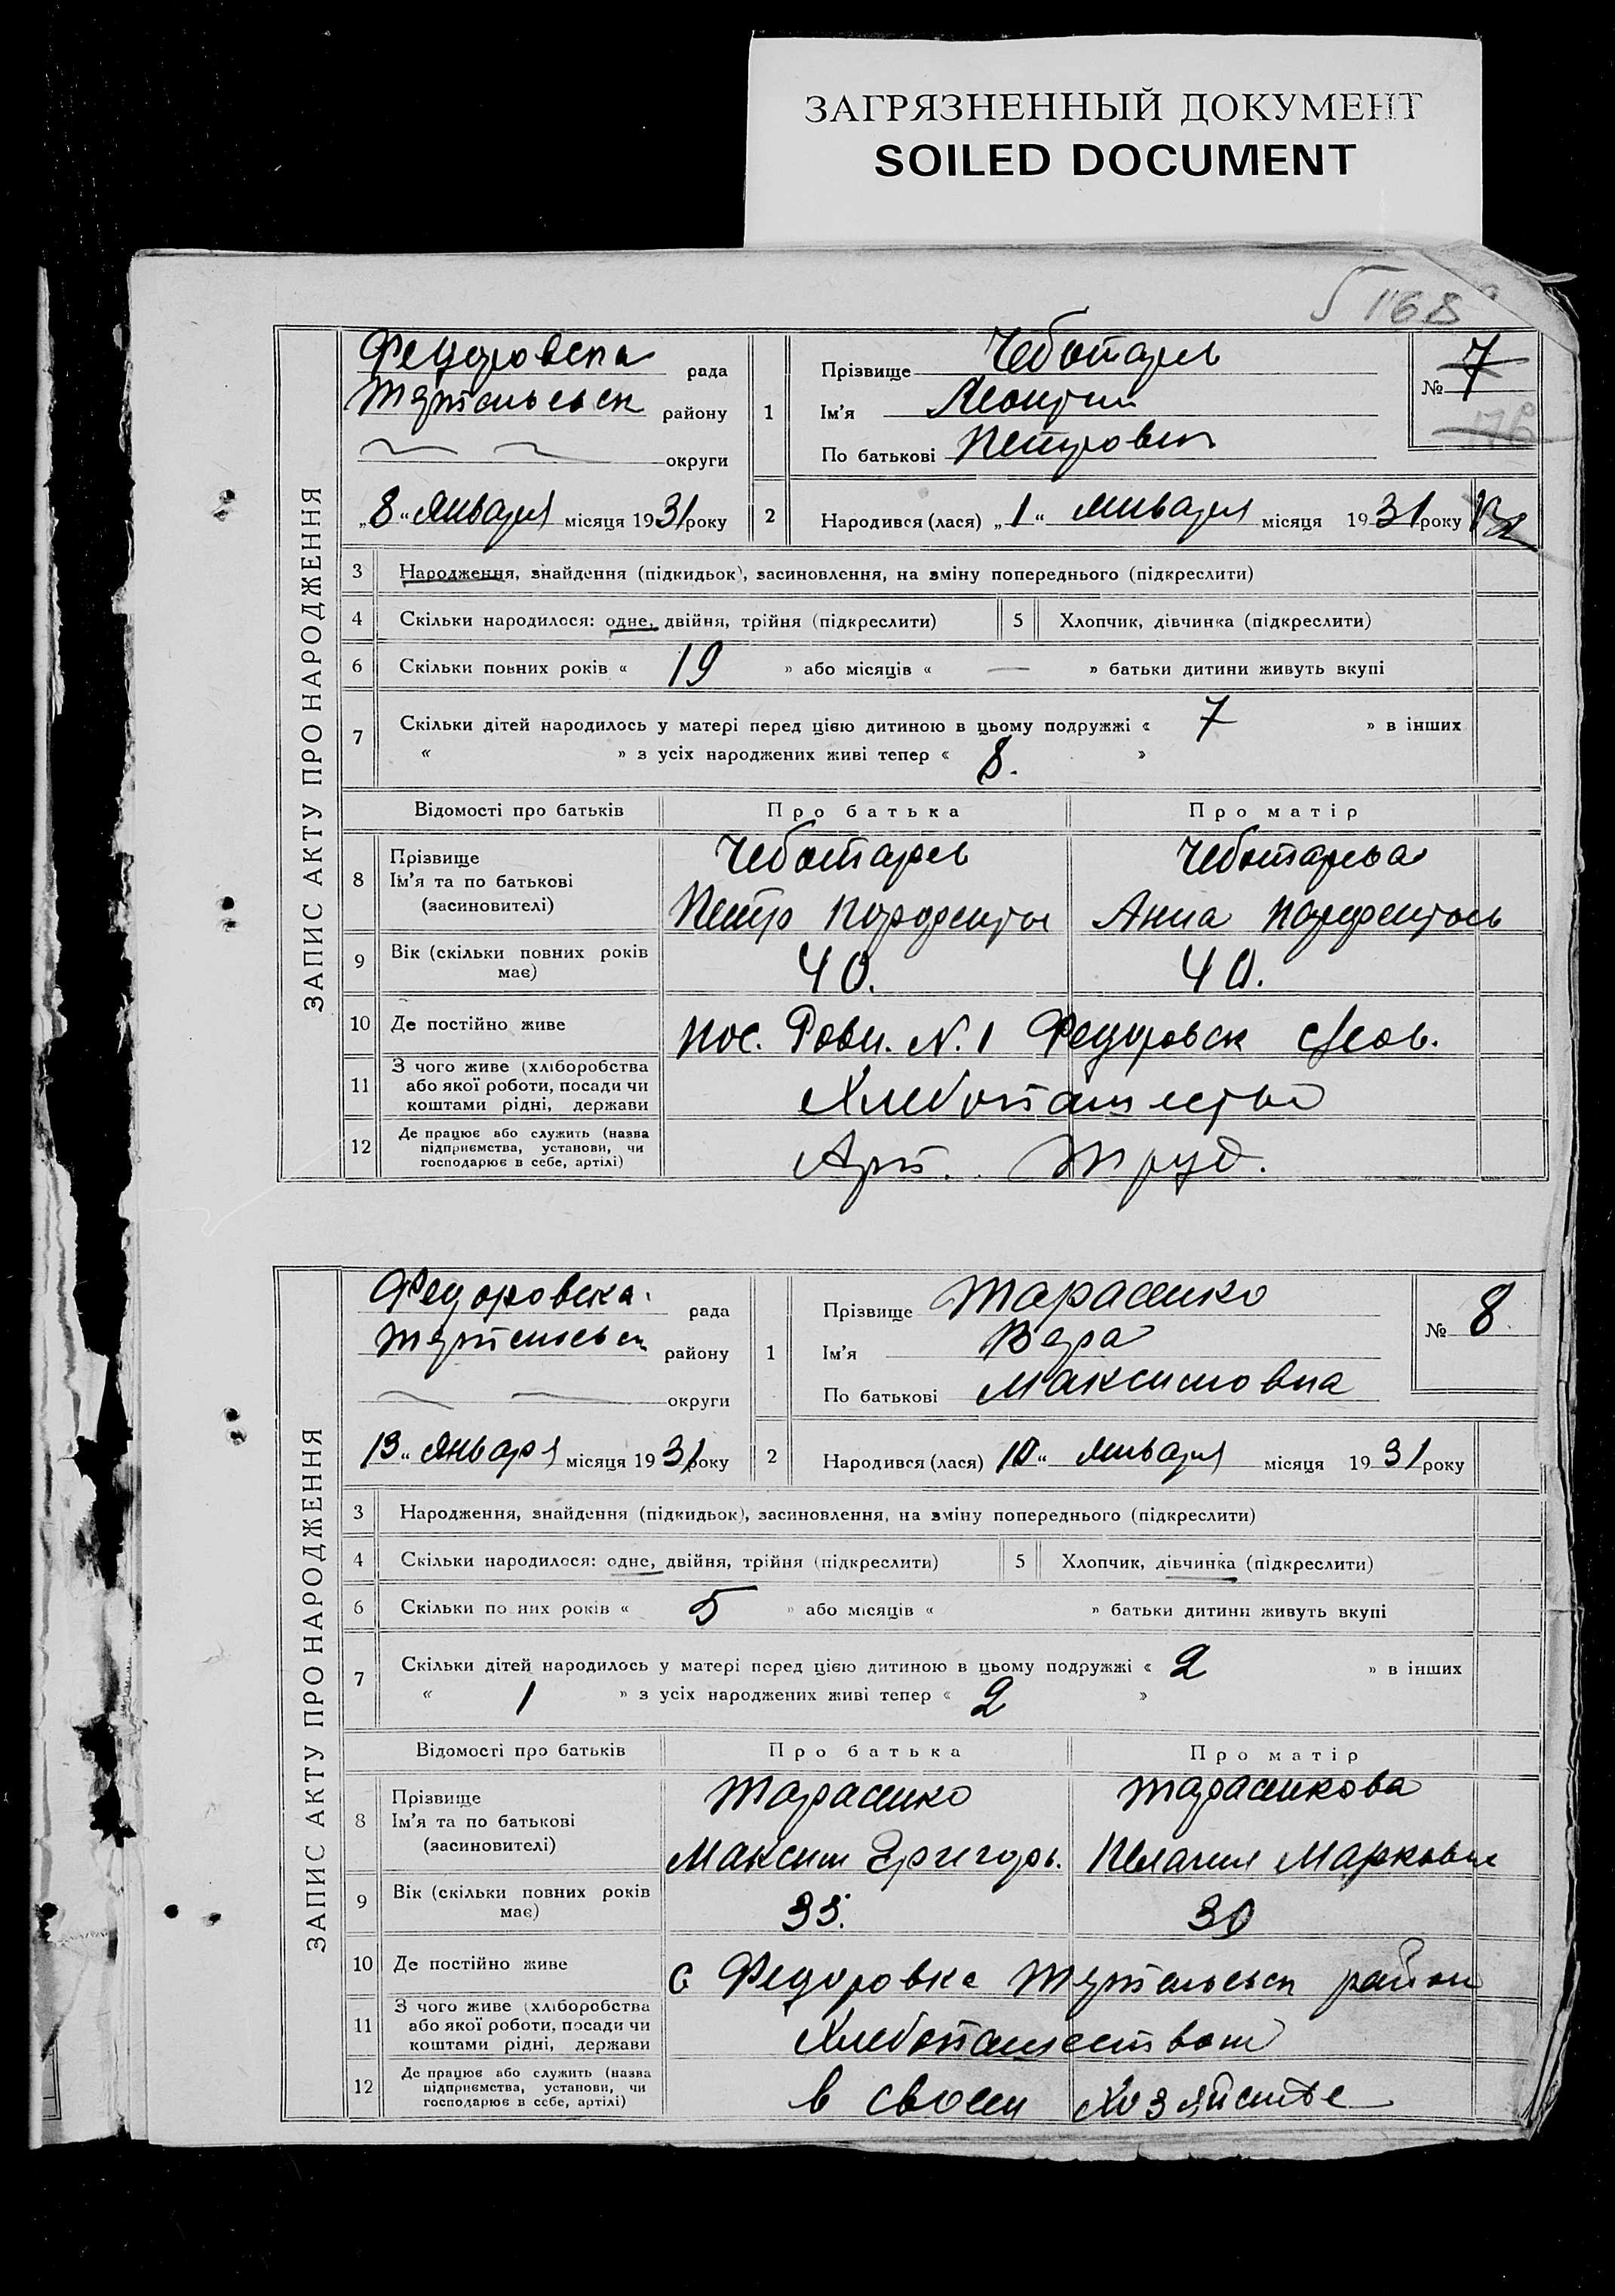 ЗАГРЯЗНЕННЫЙ ДОКУМЕНТ
SOILED DOCUMENT
168
ЗАПИС АКТУ ПРО НАРОДЖЕННЯ
Федоровска рада
району
округи
„8“ Января місяця 1931 року
1
Прізвище Чеботарь
Ім’я Леонтий
По батькові Петрович
№ 7
2
Народився (лася) „1“ Января місяця 1931 року
3 Народження, знайдення (підкидьок), засиновлення, на зміну попереднього (підкреслити)
4 Скільки народилося: одне, двійня, трійня (підкреслити) 5 Хлопчик, дівчинка (підкреслити)
6 Скільки повних років « 19 » або місяців « — » батьки дитини живуть вкупі
7 Скільки дітей народилось у матері перед цією дитиною в цьому подружжі « 7 » в інших
« » з усіх народжених живі тепер « 8. »
Відомості про батьків Про батька Про матір
8 Прізвище Ім’я та по батькові (засиновителі)
Чеботарь Чеботарьва
Петр Анна
9 Вік (скільки повних років має) 40. 40.
10 Де постійно живе пос. Ровн. N. 1 Федоровск
11 З чого живе (хліборобства або якої роботи, посади чи коштами рідні, держави
12 Де працює або служить (назва підприємства, установи, чи господарює в себе, артілі) Арт. Труд.
ЗАПИС АКТУ ПРО НАРОДЖЕННЯ
Федоровска. рада
району
округи
13“ Января місяця 1931 року
1
Прізвище Тарасенко
Ім’я Вера
По батькові Максимовна
№ 8.
2
Народився (лася) 10“ Января місяця 1931 року
3 Народження, знайдення (підкидьок), засиновлення, на зміну попереднього (підкреслити)
4 Скільки народилося: одне, двійня, трійня (підкреслити) 5 Хлопчик, дівчинка (підкреслити)
6 Скільки по них років « 5 » або місяців « » батьки дитини живуть вкупі
7 Скільки дітей народилось у матері перед цією дитиною в цьому подружжі « 2 » в інших
« 1 » з усіх народжених живі тепер « 2 »
Відомості про батьків Про батька Про матір
8 Прізвище Ім’я та по батькові (засиновителі)
Тарасенко Тарасенкова
Максим Григорь. Пелагия Марковна
9 Вік (скільки повних років має) 35. 30
10 Де постійно живе с Федоровка район
11 З чого живе (хліборобства або якої роботи, посади чи коштами рідні, держави Хлебопашеством
12 Де працює або служить (назва підприємства, установи, чи господарює в себе, артілі) в своем хозяйстве